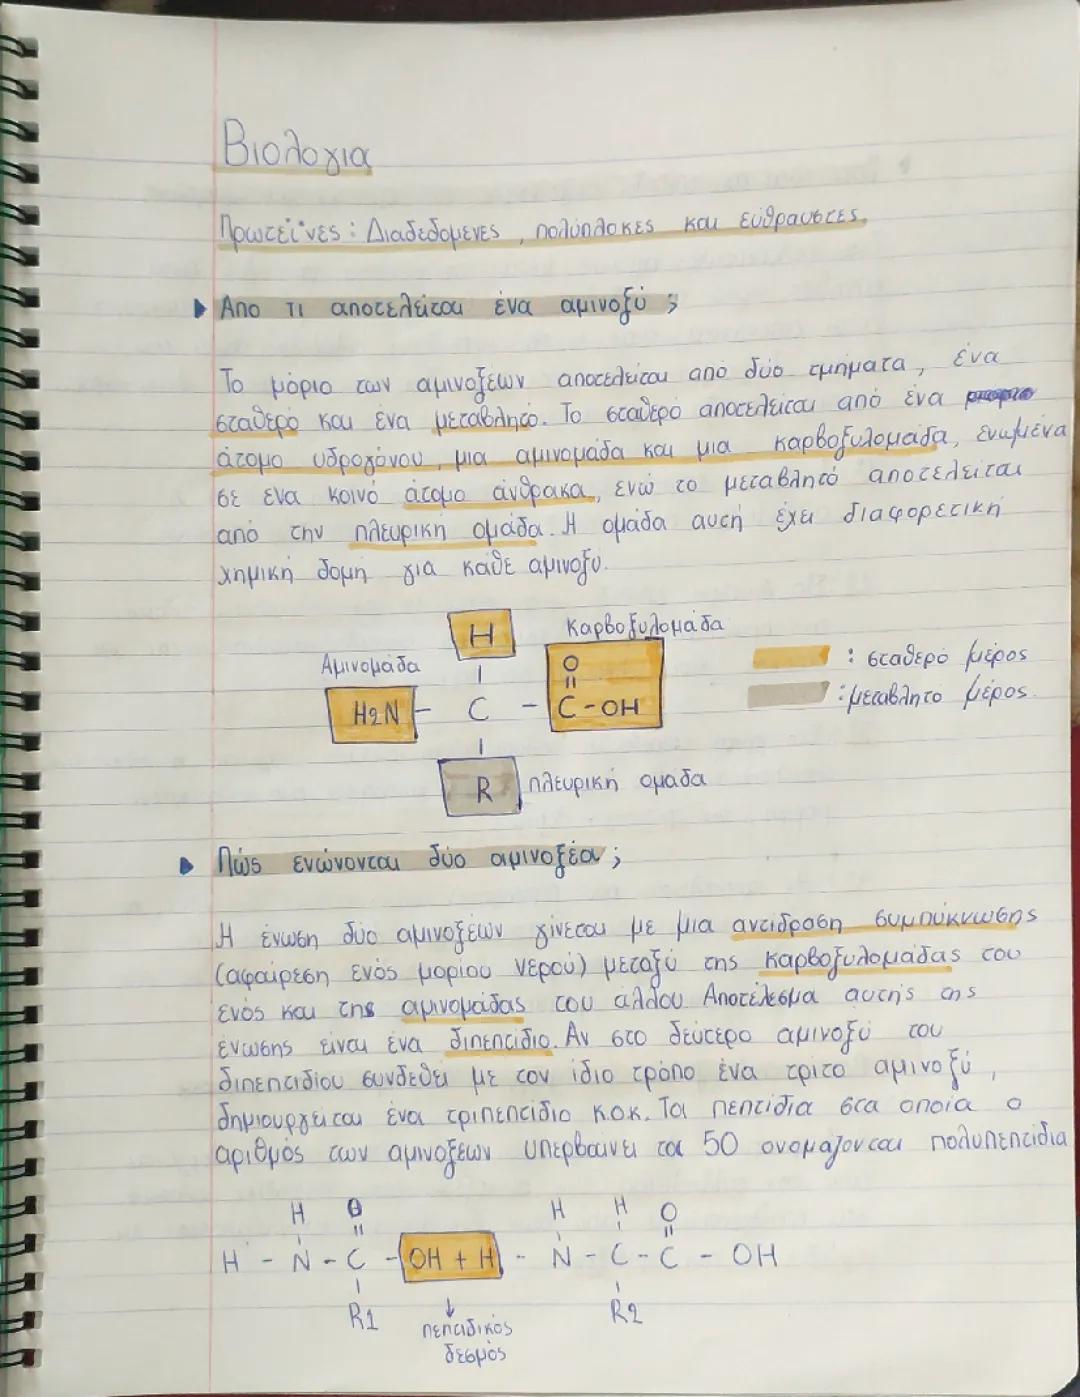 Βιολογια
Πρωτεΐνες : Διαδεδομενες , πολύπλοκες και εύθραυστες.
Απο τι αποτελείται ένα αμινοξύ ;
Το μόριο των αμινοξέων αποτελείται από δύο τμήματα, ένα
σταθερό και ένα μεταβλητό. Το σταθερό αποτελείται από ένα
άτομο υδρογόνου, μια αμινομάδα και μια καρβοξυλομάδα, ενωμένα
σε ενα κοινό άτομο άνθρακα, ενώ το μεταβλητό αποτελείται
από την πλευρική ομάδα. Η ομάδα αυτή έχει διαφορετική
χημική δομη για κάθε αμινοξύ.
H
Καρβοξυλομάδα
Αμινομάδα
O
=
: σταθερό μέρος
H2N - C - C - OH
: μεταβλητό μέρος.
R
πλευρική ομαδα
Πώς ενώνονται δύο αμινοξέα ;
Η ένωση δύο αμινοξέων γίνεται με μια αντίδραση συμπύκνωσης
(αφαίρεση ενός μορίου νερού) μεταξύ της καρβοξυλομάδας του
ενός και της αμινομάδας του άλλου. Αποτέλεσμα αυτής της
ένωσης είναι ένα διπεπτίδιο. Αν στο δεύτερο αμινοξύ του
διπεπτιδίου συνδεθεί με τον ίδιο τρόπο ένα τρίτο αμινοξύ,
δημιουργείται ένα τριπεπτίδιο κ.ο.κ. Τα πεπτίδια στα οποία ο
αριθμός των αμινοξέων υπερβαίνει τα 50 ονομάζονται πολυπεπτίδια
H O H H O
H - N - C - OH + H - N - C - C - OH
R1 R2
πεπτιδικός
δεσμός